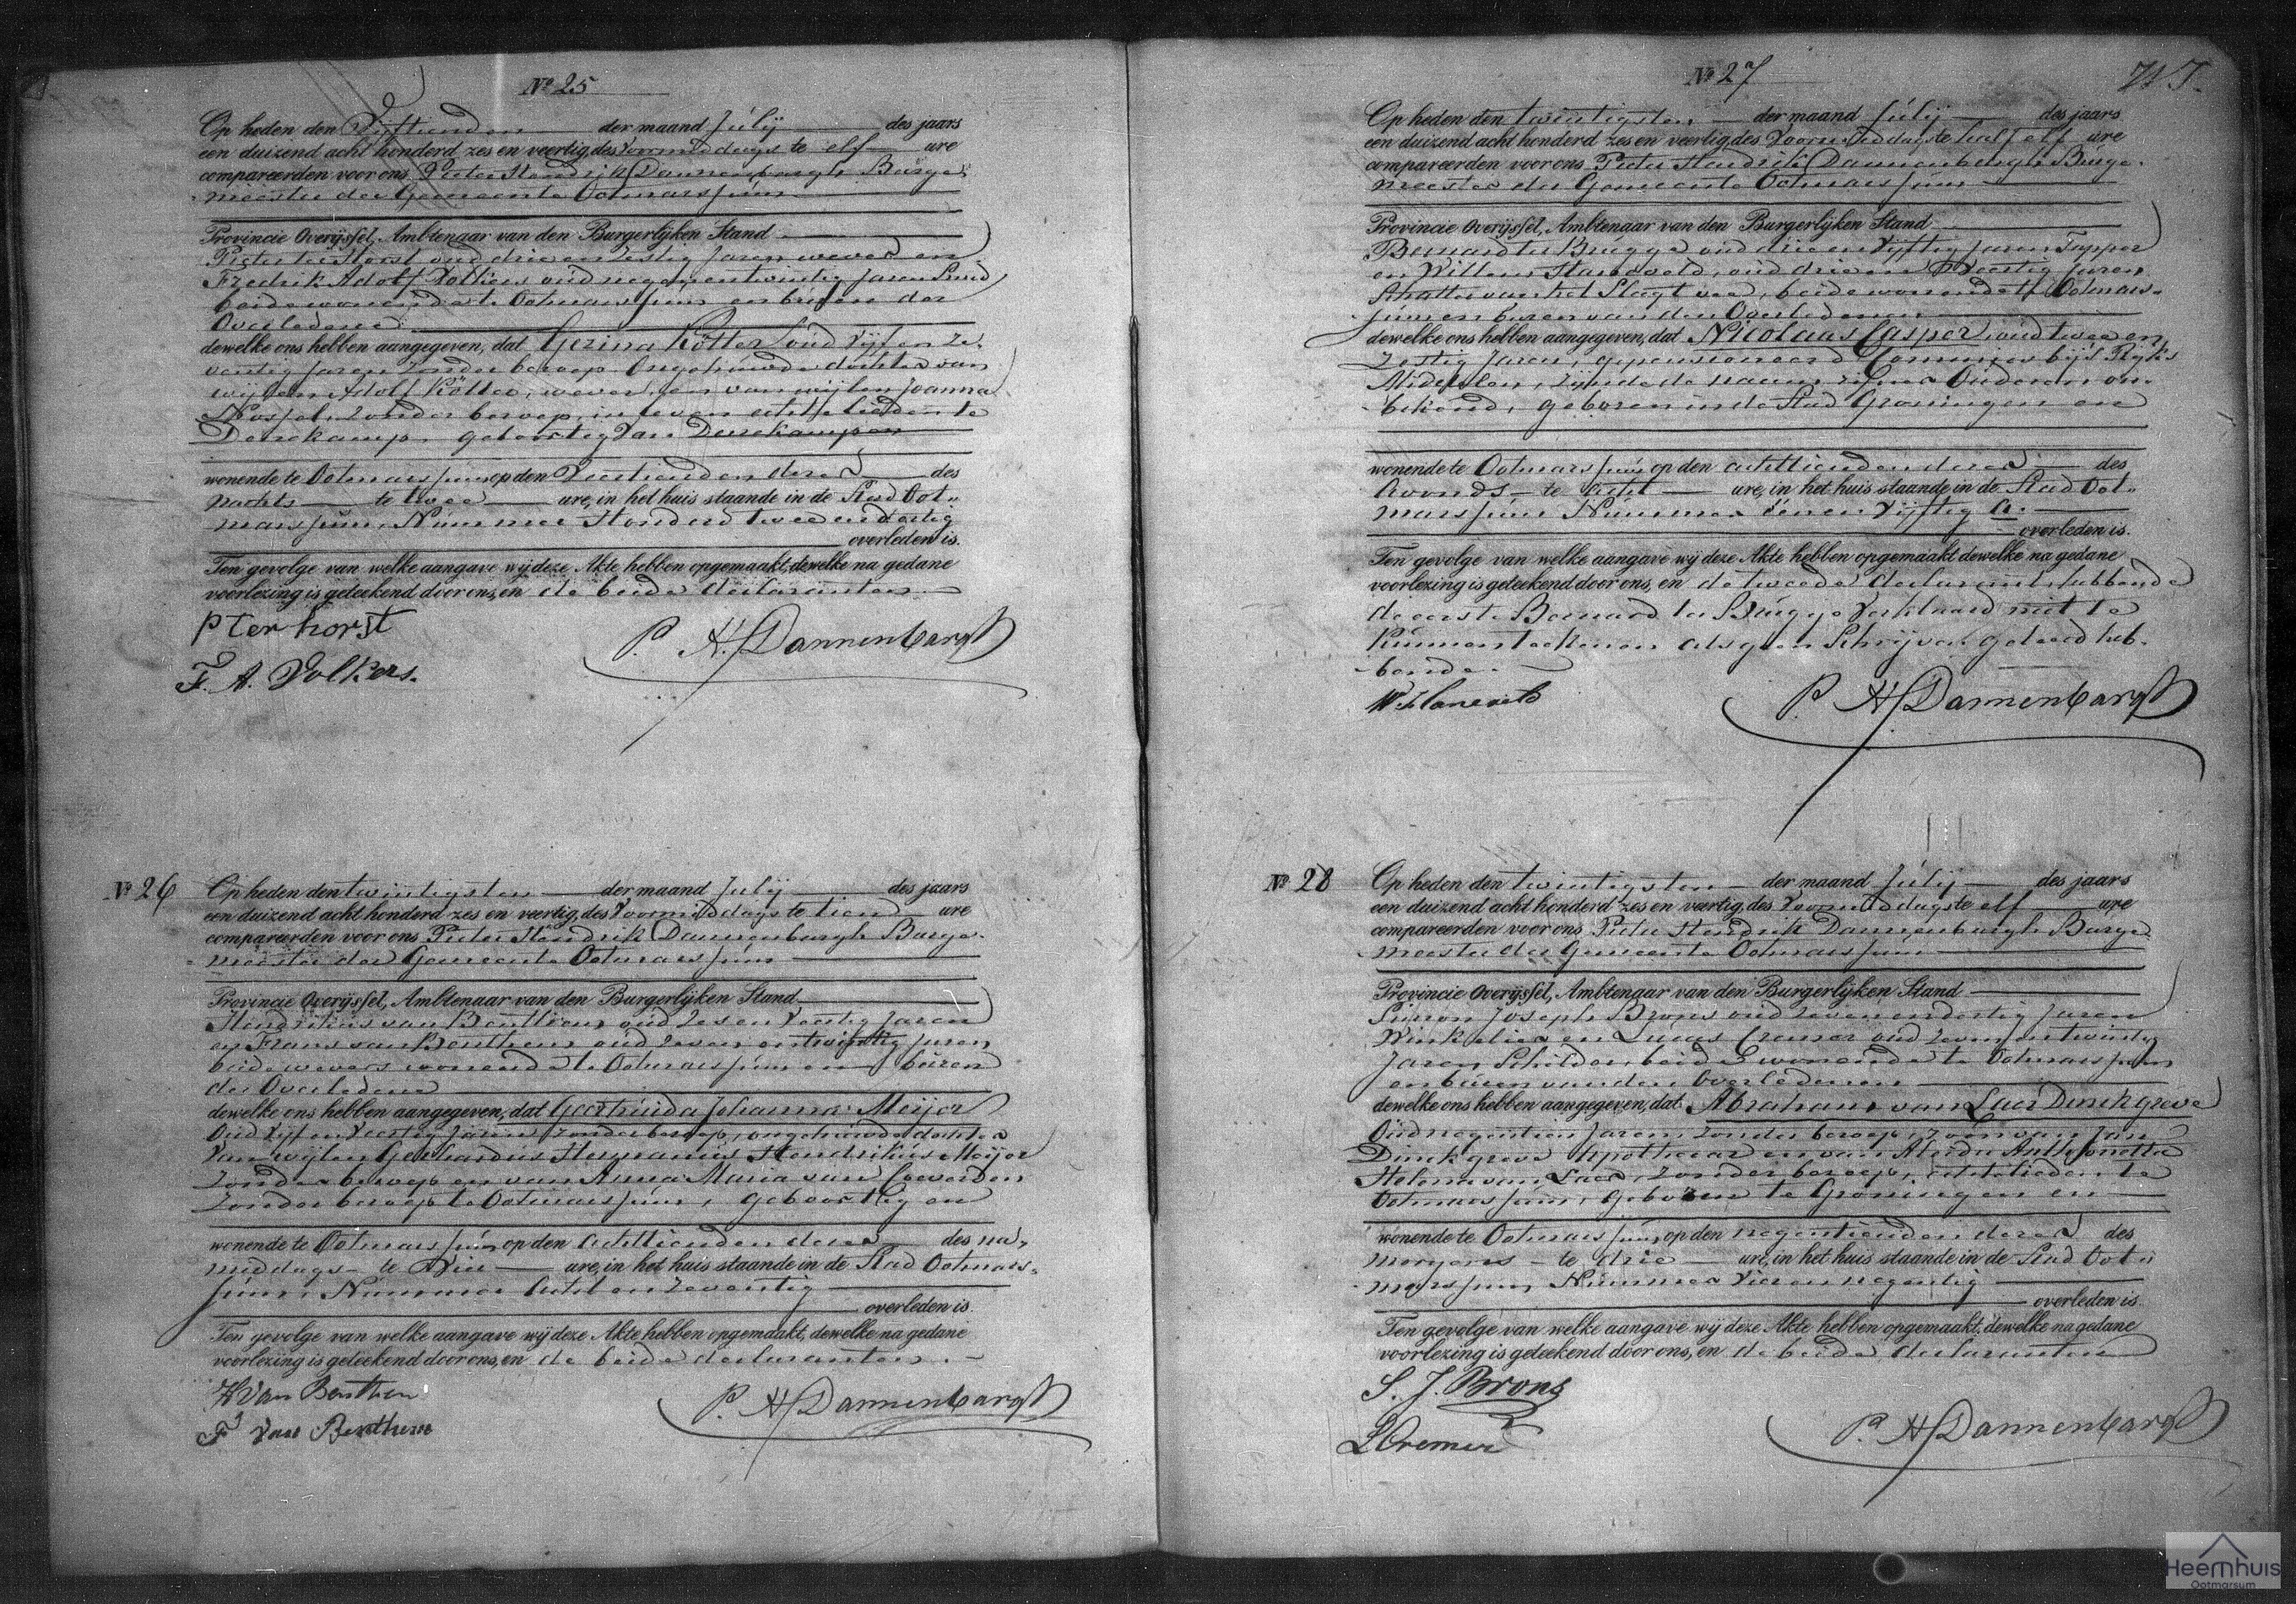 Nº 25
Op heden den Vijftienden der maand Julij des jaars
een duizend acht honderd zes en veertig, des Voormiddags te elf ure
compareerden voor ons Pieter Hendrik Dannenbargh Burge-
meester der Gemeente Ootmarssum
Provincie Overijssel, Ambtenaar van den Burgerlijken Stand
Pieter ter Horst oud drie en zestig Jaren wever en
Fredrik Adolf Volkers oud negen en twintig Jaren Smid
beide wonende te Ootmarssum en buren der
Overledene
dewelke ons hebben aangegeven, dat Gezina Kötter oud vijf en ze-
ventig Jaren zonder beroep Ongehuwde dochter van
wijlen Adolf Kötter, wever, en van wijlen Joanna
zonder beroep, in leven echtelieden te
Denekamp, geboortig van Denekamp en
wonende te Ootmarssum, op den Veertienden dezer des
Nachts te twee ure, in het huis staande in de Stad Oot-
marssum, Nummer Honderd twee en dertig
overleden is.
Ten gevolge van welke aangave wij deze Akte hebben opgemaakt, dewelke na gedane
voorlezing is geteekend door ons, en de beide declaranten
P ter horst
P. H. Dannenbargh
F. A. Volkers.
Nº 26
Op heden den twintigsten der maand Julij des jaars
een duizend acht honderd zes en veertig, des Voormiddags te tien ure
compareerden voor ons Pieter Hendrik Dannenbargh Burge-
meester der Gemeente Ootmarssum
Provincie Overijssel, Ambtenaar van den Burgerlijken Stand
Hendrikus van Benthem oud zes en Veertig Jaren
en Frans van Benthem oud zeven en twintig Jaren
beide wevers wonende te Ootmarssum en buren
der Overledene
dewelke ons hebben aangegeven, dat Geertruida Johanna Meijer
Oud vijf en Veertig Jaren zonder beroep, ongehuwde dochter
Van wijlen Gerhardus Hermanus Hendrikus Meijer
zonder beroep en van Anna Maria van Coeverden
zonder beroep te Ootmarssum, geboortig en
wonende te Ootmarssum, op den achttienden dezer des na-
middags te Vier ure, in het huis staande in de Stad Ootmars-
sum, Nummer Acht en zeventig
overleden is.
Ten gevolge van welke aangave wij deze Akte hebben opgemaakt, dewelke na gedane
voorlezing is geteekend door ons, en de beide declaranten.
H Van Benthem
P. H. Dannenbargh
F Van Benthem
Nº 27
Op heden den twintigsten der maand Julij des jaars
een duizend acht honderd zes en veertig, des Voormiddags te half elf ure
compareerden voor ons Pieter Hendrik Dannenbargh Burge-
meester der Gemeente Ootmarssum
Provincie Overijssel, Ambtenaar van den Burgerlijken Stand
Bernard ter Brugge oud drie en Vijftig Jaren Tapper
en Willem Haneveld, oud drie en Veertig Jaren
Schatter van het Slagt vee, beide wonende te Ootmars-
sum en buren van den Overledenen
dewelke ons hebben aangegeven, dat Nicolaas Casper, oud twee en
zestig Jaren, gepensioneerd Commies bij 's Rijks
Middelen, zijnde de namen zijner Ouderen on-
bekend, geboren in de Stad Groningen en
wonende te Ootmarssum, op den achttienden dezer des
Avonds te acht ure, in het huis staande in de Stad Oot-
marssum Nummer één en Vijftig a.
overleden is.
Ten gevolge van welke aangave wij deze Akte hebben opgemaakt, dewelke na gedane
voorlezing is geteekend door ons, en de tweede declarant, hebbende
de eerste Bernard ter Brugge Verklaard niet te
Kunnen teekenen als geen Schrijven geleerd heb-
bende.
W Haneveld
P. H. Dannenbargh
Nº 28
Op heden den twintigsten der maand Julij des jaars
een duizend acht honderd zes en veertig, des Voormiddags te elf ure
compareerden voor ons Pieter Hendrik Dannenbargh Burge-
meester der Gemeente Ootmarssum
Provincie Overijssel, Ambtenaar van den Burgerlijken Stand
Simon Joseph Brons oud zeven en dertig Jaren
Winkelier en Lucas Cremer oud zeven en twintig
Jaren Schilder, beide wonende te Ootmarssum
en buren van den Overledenen
dewelke ons hebben aangegeven, dat Abraham van Laer Dinckgreve
Oud negentien Jaren, zonder beroep, zoon van Jan
Dinckgreve Apothecar en van Aleida Anthonetta
Helena van Laer, zonder beroep, echtelieden te
Ootmarssum, geboren te Groningen en
wonende te Ootmarssum, op den negentienden dezer des
morgens te drie ure, in het huis staande in de Stad Oot-
marssum, Nummer Vier en negentig
overleden is.
Ten gevolge van welke aangave wij deze Akte hebben opgemaakt, dewelke na gedane
voorlezing is geteekend door ons, en de beide declaranten
S. J. Brons
P. H. Dannenbargh
L Cremer
Heemhuis
Ootmarsum